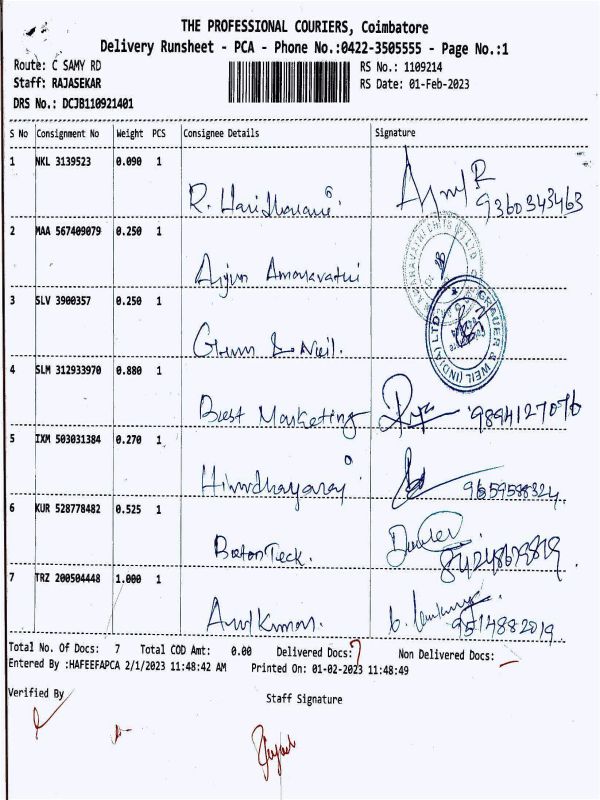 THE PROFESSIONAL COURIERS, Coimbatore
Delivery Runsheet - PCA - Phone No.:0422-3505555 - Page No.:1
Route: C SAMY RD
Staff: RAJASEKAR
DRS No.: DCJB110921401
RS No.: 1109214
RS Date: 01-Feb-2023
S No Consignment No Weight PCS Consignee Details Signature
1 NKL 3139523 0.090 1
R. Hariharani
9360343463
2 MAA 567409079 0.250 1
Arjun Amaravathi
AMARAVATHI CHITS (P) LTD
3 SLV 3900357 0.250 1
GRAUER & WEIL (INDIA) LTD
4 SLM 312933970 0.880 1
Best Marketing 9894127076
5 IXM 503031384 0.270 1
9659588324
6 KUR 528778482 0.525 1
7 TRZ 200504448 1.000 1
9514882019
Total No. Of Docs: 7 Total COD Amt: 0.00 Delivered Docs: 7 Non Delivered Docs: -
Entered By :HAFEEFAPCA 2/1/2023 11:48:42 AM Printed On: 01-02-2023 11:48:49
Verified By
Staff Signature